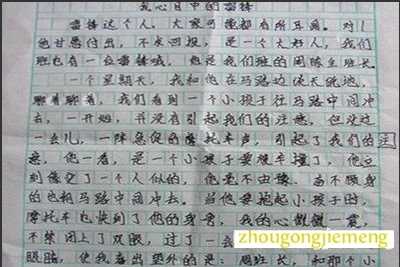 我心目中的雷锋
雷锋这个人，大家可能都有所耳闻。对
他甘愿付出，不求回报，是一个大好人，我们
班也有一位雷锋哦，他是我们班的周陈
一个星期天，我和他在马路边谈天说地，
聊着聊着，我们看到一个小孩子往马路中间冲
去，一开始，并没有引起我们的注意，但没过
一会儿，一阵急促的摩托车声，引起了我们的注
意，他一看，是一个小孩子要被车撞了，他立
刻像变了一个人似的，他毫不由豫、奋不顾身
的也朝马路中间冲去。当他要抱起小孩子时，
摩托车也快到了他的身旁，我的心
不禁闭上了双眼，过了一会
眼睛，使我喜出望外的是：周班长，和那个小
zhougongjiemeng